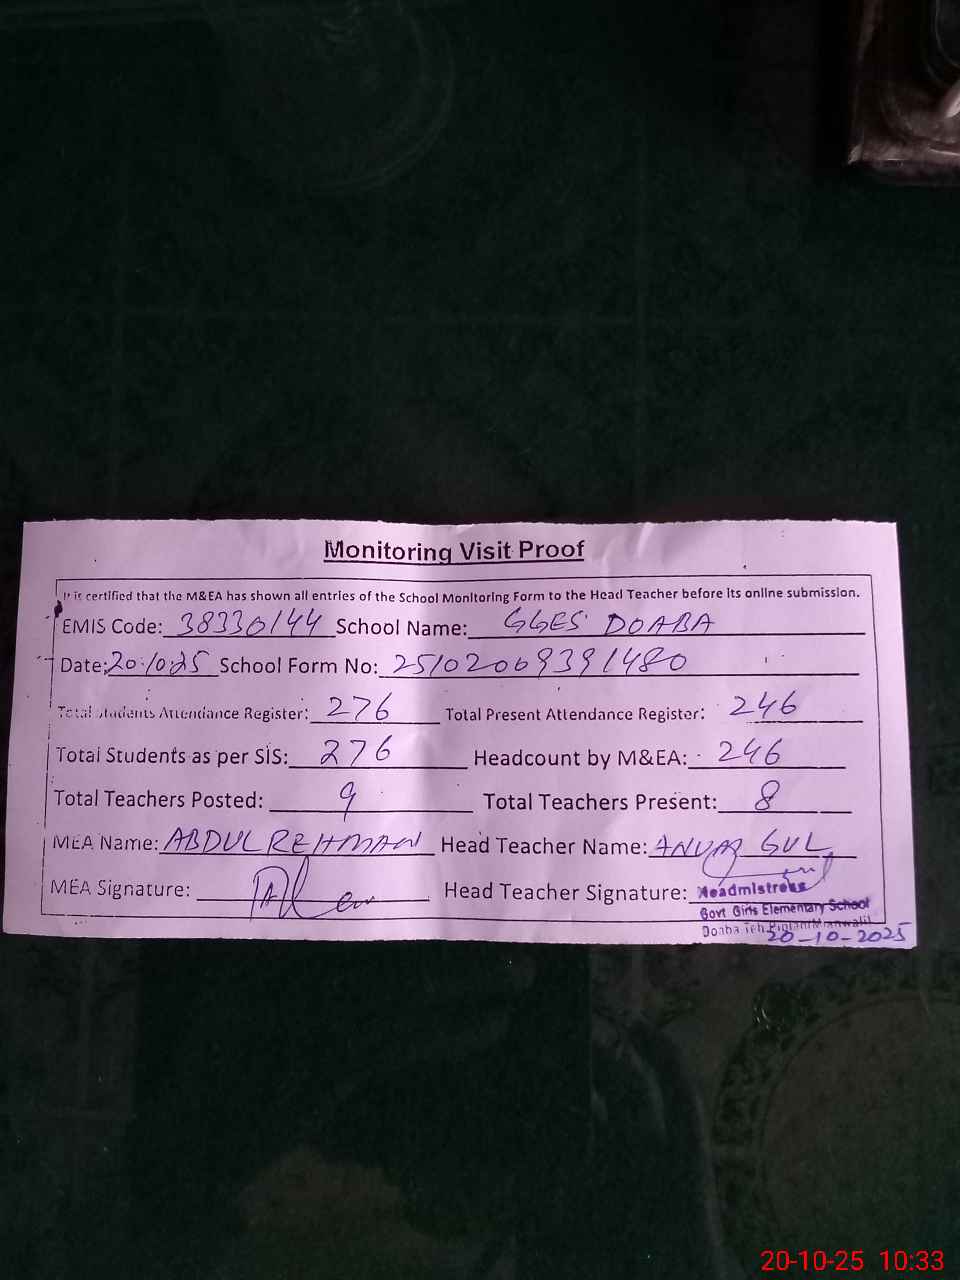 Monitoring Visit Proof
It is certified that the M&EA has shown all entries of the School Monitoring Form to the Head Teacher before its online submission.
EMIS Code: 38330144 School Name: GGES DOABA
Date: 20.10.25 School Form No: 25102009391480
Total Students Attendance Register: 276 Total Present Attendance Register: 246
Total Students as per SIS: 276 Headcount by M&EA: 246
Total Teachers Posted: 9 Total Teachers Present: 8
MEA Name: ABDUL REHMAN Head Teacher Name: ANVAR GUL
MEA Signature: Head Teacher Signature:
Headmistress
Govt Girls Elementary School
Doaba Teh. Piplan Mianwali
20-10-2025
20-10-25 10:33